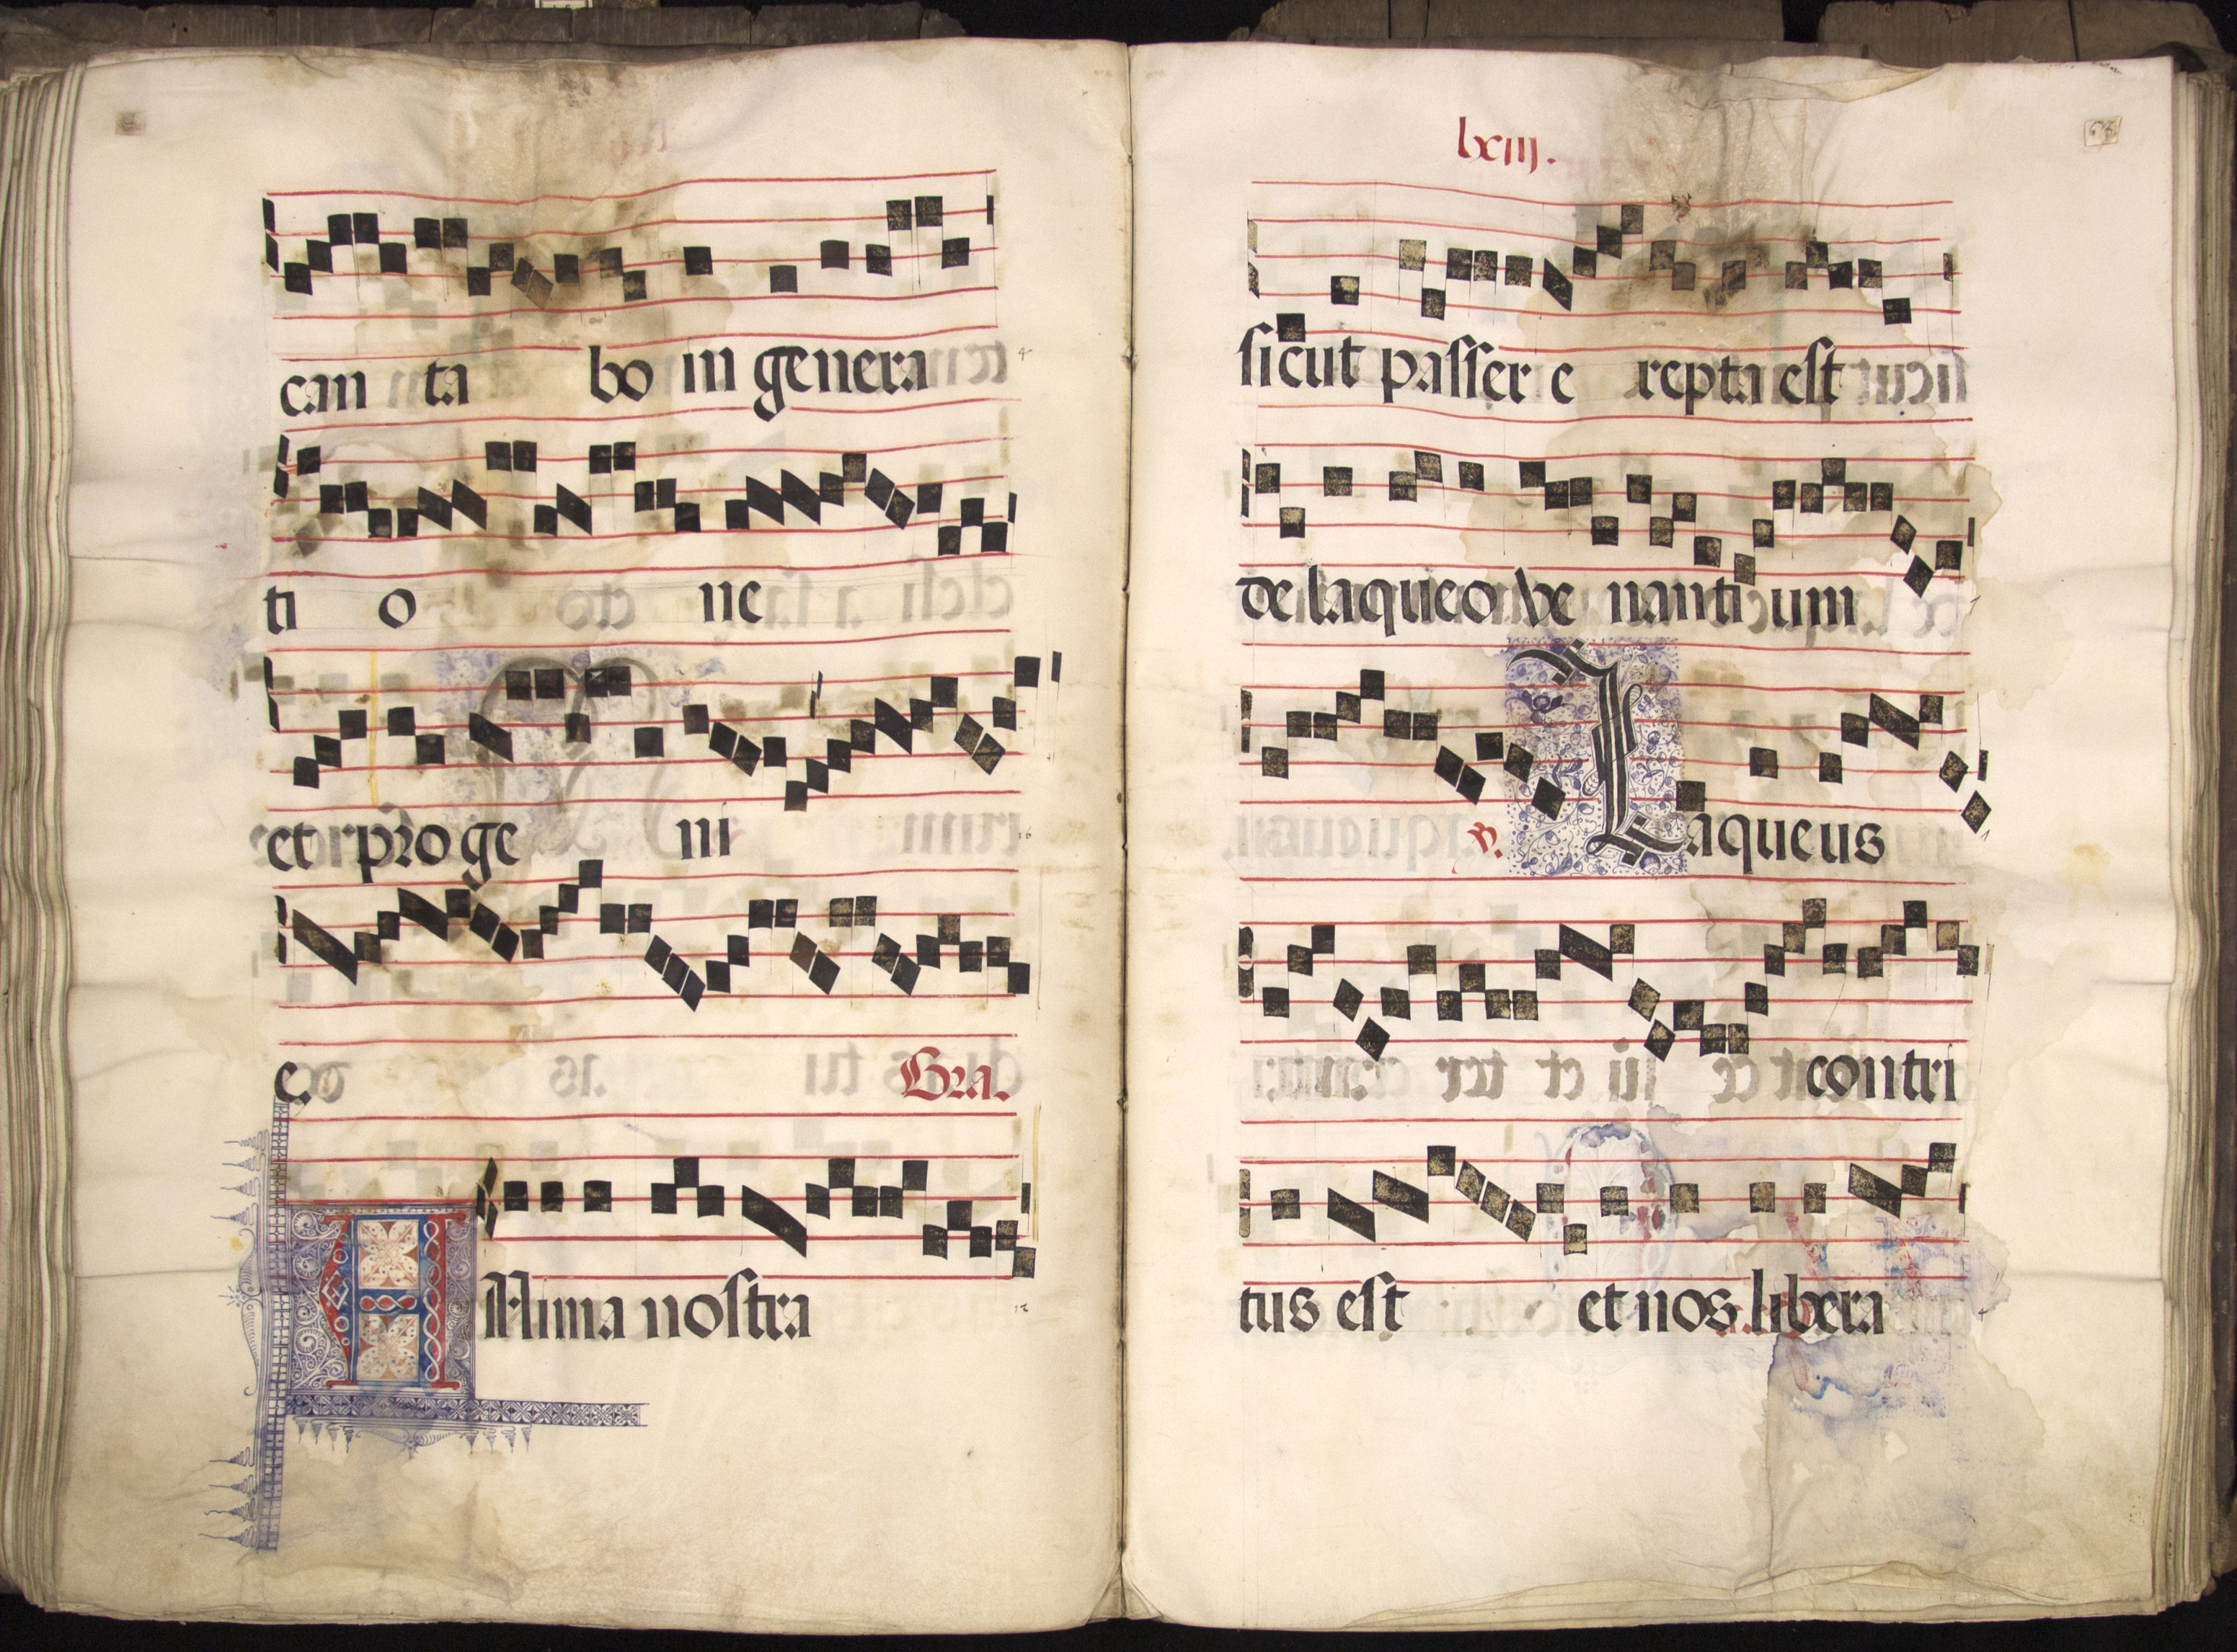 can ta bo in genera
ti o ne
et pro ge ni
e.
Gra.
Anima nostra
lxiij.
63
sicut passer e repta est
de laqueo ve nanti um
℣. Laqueus
contri
tus est et nos libera